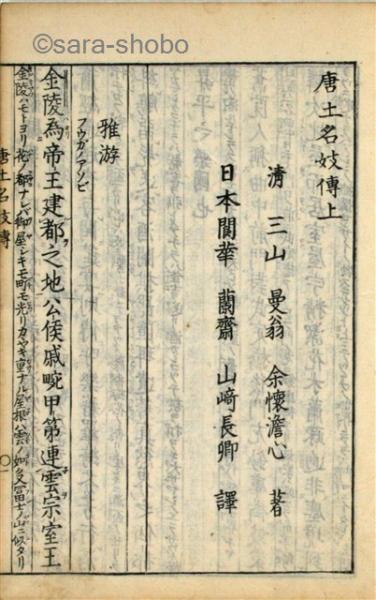 ©sara-shobo
唐土名妓傳上
清 三山 曼翁 余懷澹心 著
日本 閬華 蘭齋 山﨑長卿 譯
雅游
フウガノアソビ
金陵為帝王建都之地公侯戚畹甲第連雲宗室王
金陵ハモトヨリ花ノ都ナレバ御屋シキモ町モ光リカヽヤキ重ナル屋根ハ雲ノ如ク又富士ノ山ニ似タリ
唐土名妓傳